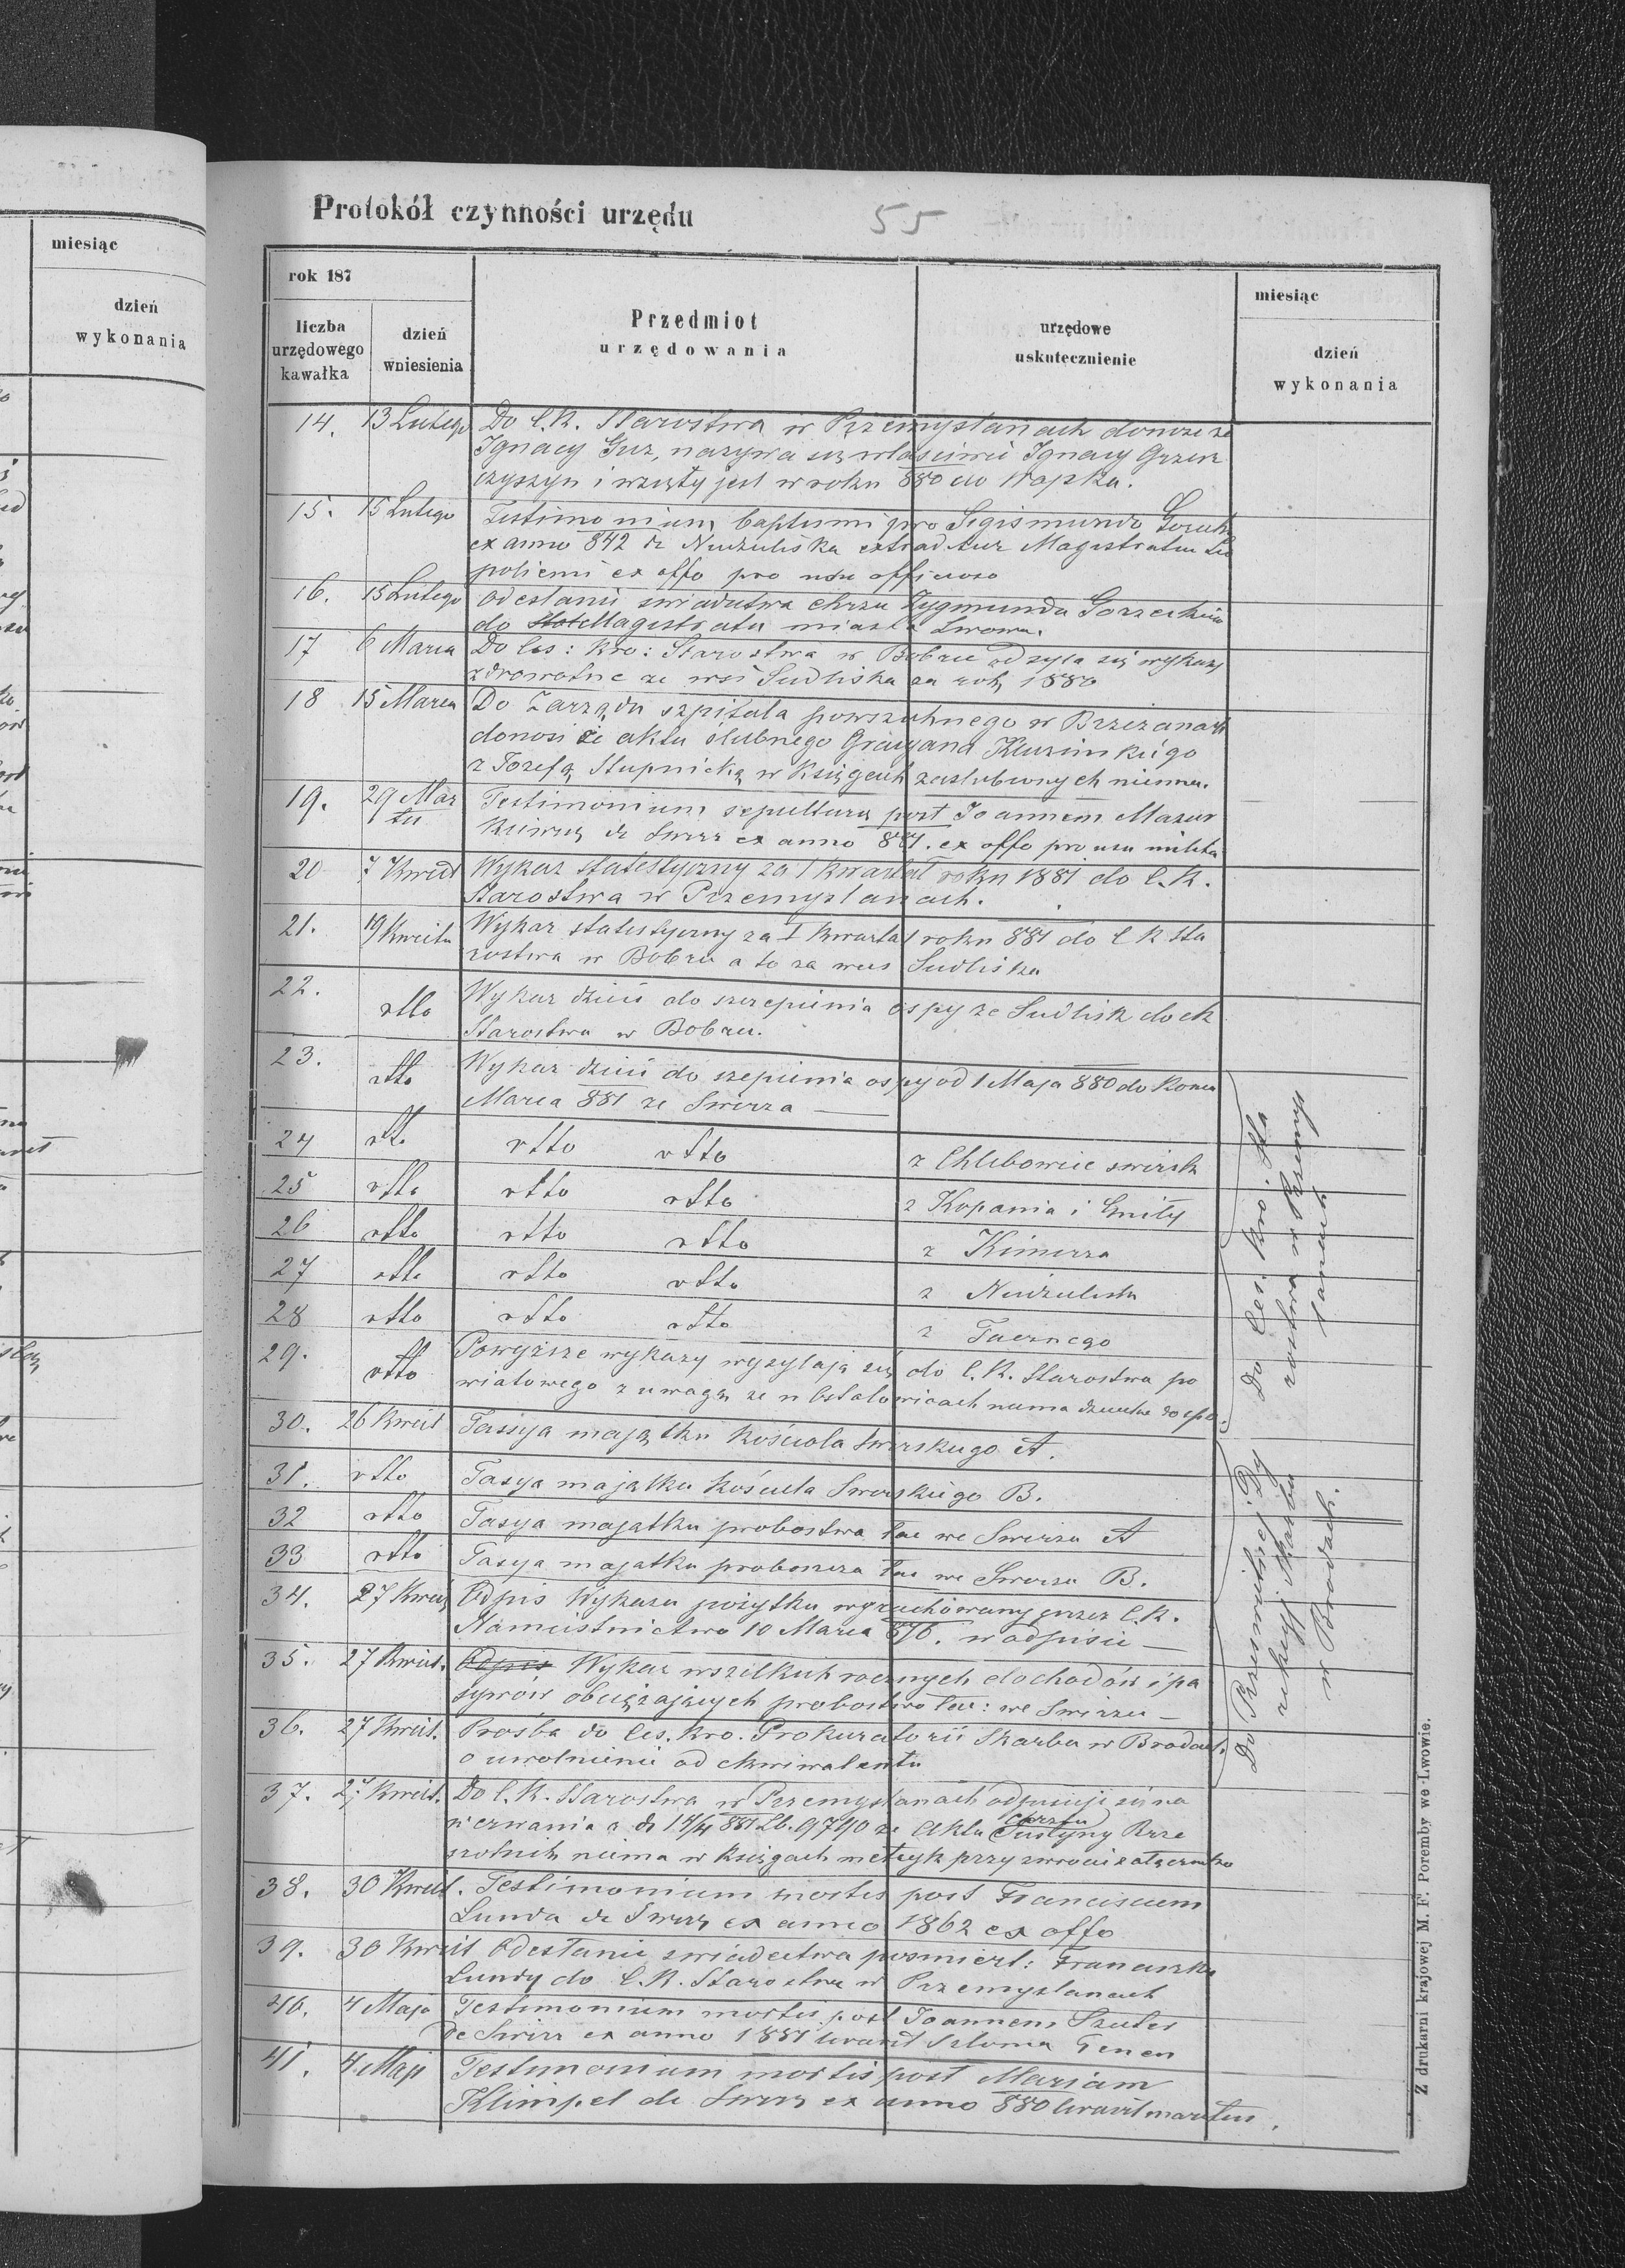 Protokół czynności urzędu
55
rok 187
miesiąc
liczba urzędowego kawałka
dzień wniesienia
Przedmiot urzędowania
urzędowe uskutecznienie
dzień wykonania
14. 13 Lutego Do C.K. Starostwa w Przemyslanach donosi ze
Ignacy Guz, nazywa się właściwie Ignacy Grzesz
czyszyn i wzięty jest w roku 880 do
15. 15 Lutego Testimonium baptismi pro Sigismundo
ex anno 842 de Niedzieliska extraditur Magistratui Leo
poliensi ex offo pro usu officioso
16. 15 Lutego Odesłanie świadectwa chrztu Zygmunda
do Magistratu miasta Lwowa.
17 6 Marca Do Ces: Kro: Starostwa w Bobrce odsyła się wykazy
zdrowotne ze wsi Sudliska za rok 1880
18 15 Marca Do Zarządu szpitala powszechnego w Brzeżanach
donosi że aktu ślubnego Gracyana
z Józefą Słupnicką w księgach zaślubionych niema.
19. 29 Mar
tii Testimonium sepulturae post Joannem Mazur
de Swirz ex anno 881. ex offo pro usu milita
20 7 Kwiet Wykaz statistyczny za I kwartał roku 1881 do C.K.
Starostwa w Przemyslanach.
21. 19 Kwietn Wykaz statistyczny za I kwartał roku 881 do C K Sta
rostwa w Bobrce a to za wies Sudliska
22. dtto Wykaz dzieci do szczepienia ospy ze Sudlisk do ck
Starostwa w Bobrce.
23. dtto Wykaz dzieci do szepienia ospy od 1 Maja 880 do konca
Marca 881 ze Swirza —
24 dtto dtto dtto z Chlebowic swirsk
25 dtto dtto dtto z Kopania i Gniły
26 dtto dtto dtto z Kimirza
27 dtto dtto dtto z Niedzielisk
28 dtto dtto dtto z Tucznego
29. dtto Powyższe wykazy wysylają się do C.K. Starostwa po
wiatowego z uwagą ze w Ostalowicach niema
Do Ces. Kro. Sta
rostwa w Przemys
lanach
30. 26 Kwiet Fassya majątku kościoła Swirskiego A.
31. dtto Fasya majątku kościoła Swirskiego B.
32 dtto Fasya majatku probostwa łac we Swirzu A
33 dtto Fasya majatku proboszcza łac we Swirzu B.
34. 27 Kwiet Odpis Wykazu pożytku wyrachowany przez C.K.
Namiestnictwo 10 Marca 876. w odpisie —
35. 27 Kwiet. Odpis Wykaz wszelkich rocznych dochodów i pa
sywów obciążających probostwo łac: we Swirzu —
36. 27 Kwiet. Prośba do Ces. Kro. Prokuratorii Skarbu w Brodach
o uwolnienie od ekwiwalentu
Do Prześwietnej Dy
rekcyi Skarbu
w Brodach.
37. 27 Kwiet. Do C.K. Starostwa w Przemyslanach odpisuje się na
wezwania z d 14/4 881 Lb. 9790 ze Aktu chrztu Justyny Rze
szotnik niema w księgach metryk przy zwrocie załącznika
38. 30 Kwiet. Testimonium mortis post Franciscum
Lunda de Swirz ex anno 1862 ex offo
39. 30 Kwiet Odesłanie swiadectwa posmiert: Franciszka
Lundy do C.K. Starostwa w Przemyslanach
40. 4 Maja Testimonium mortis post Joannem
de Swirz ex anno 1881 levavit
41. 4 Maji Testimonium mortis post Mariam
Klimpel de Swirz ex anno 880 levavit maritus.
Z drukarni krajowej M. F. Poremby we Lwowie.
miesiąc
dzień
wykonania